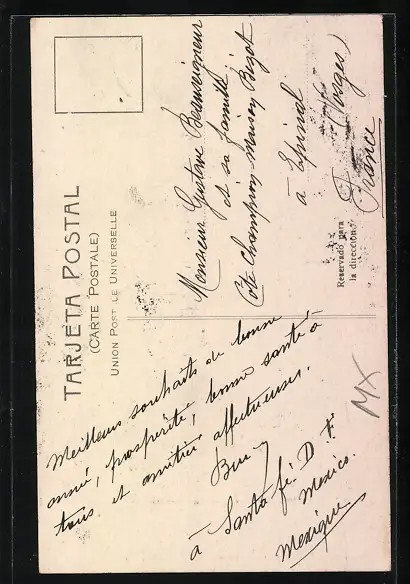 TARJETA POSTAL
(CARTE POSTALE)
UNION POST LE UNIVERSELLE
Meilleurs souhaits de bonne
année, prospérité, bonne santé à
tous et amitiés affectueuses.
à Santa fé. D. F.
Mexico.
Mexique
Monsieur Gustave
et sa famille
Côte Champion
à Epinal
(Vosges)
France
Reservado para
la dirección
MX